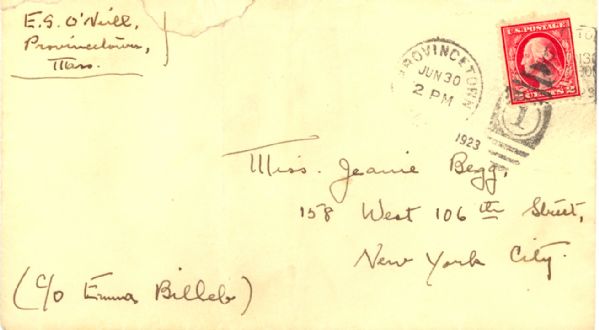 E. G. O'Neill,
Provincetown,
Mass.
PROVINCETOWN
JUN 30
2 PM
1923
U.S. POSTAGE
1
Miss. Jeanie Begg,
158 West 106th Street,
New York City.
(C/o Emma Billeb)